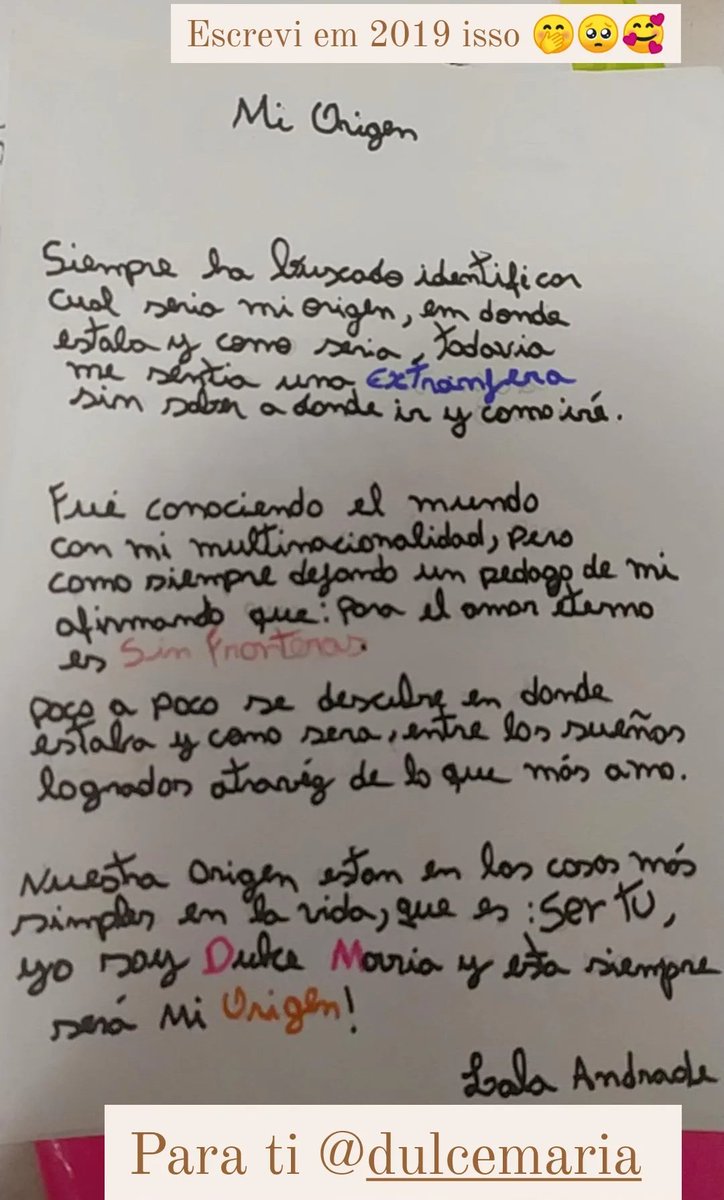 Escrevi em 2019 isso 🤭🥺🥰
Mi Origen
Siempre ha buscado identificar
cual seria mi origen, em donde
estaba y como seria, todavia
me sentia una Extranjera
sim saber a donde ir y como iré.
Fué conociendo el mundo
con mi multinacionalidad, pero
como siempre dejando um pedaço de mi
afirmando que: para el amor eterno
es Sin Fronteras.
poço a poco se descubre en donde
estaba y como sera, entre los sueños
logrados atravéz de lo que más amo.
Nuestra Origen estan en las cosas más
simples en la vida, que es : Ser Tu,
yo soy Dulce Maria y esta siempre
será Mi Origen!
Lala Andrade
Para ti @dulcemaria